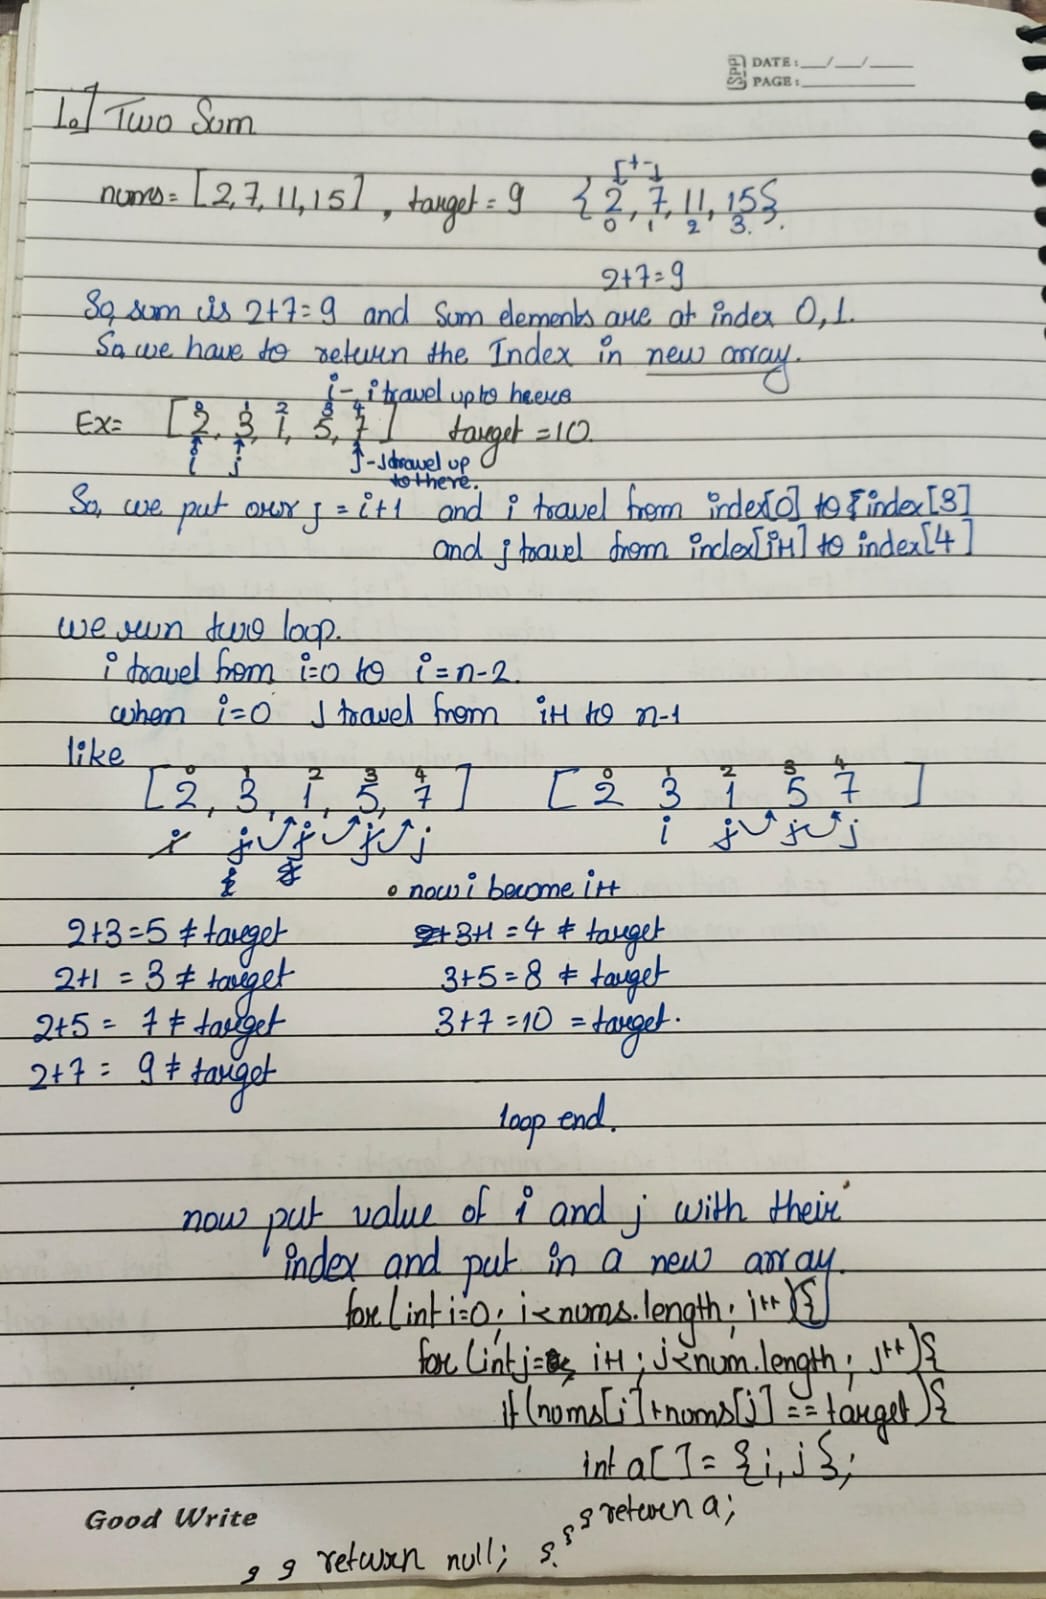 DATE: __/__/____
PAGE: ________
1.] Two Sum
[+]
nums = [2,7,11,15], target = 9 {2, 7, 11, 15}.
0 1 2 3.
2+7=9
So, sum is 2+7=9 and Sum elements are at index 0,1.
So we have to return the Index in new array.
i - i travel upto heere
0 1 2 3 4
Ex= [2, 3, 1, 5, 7] target = 10.
i j J - J travel up
to there.
So, we put our j = i+1 and i travel from index[0] to index[3]
and j travel from index[i+1] to index[4]
we run two loop.
i travel from i=0 to i=n-2.
when i=0 J travel from i+1 to n-1
like
0 1 2 3 4 0 1 2 3 4
[2, 3, 1, 5, 7] [2 3 1 5 7]
i j j j j i j j j
• now i become i++
2+3=5 ≠ target 3+1 = 4 ≠ target
2+1 = 3 ≠ target 3+5 = 8 ≠ target
2+5 = 7 ≠ target 3+7 = 10 = target.
2+7 = 9 ≠ target
loop end.
now put value of i and j with their
index and put in a new array.
for(int i=0; i<nums.length; i++){
for(int j= i+1; j<num.length; j++){
if(nums[i]+nums[j] == target){
int a[] = {i, j};
return a;
}}
Good Write
}} return null; }.